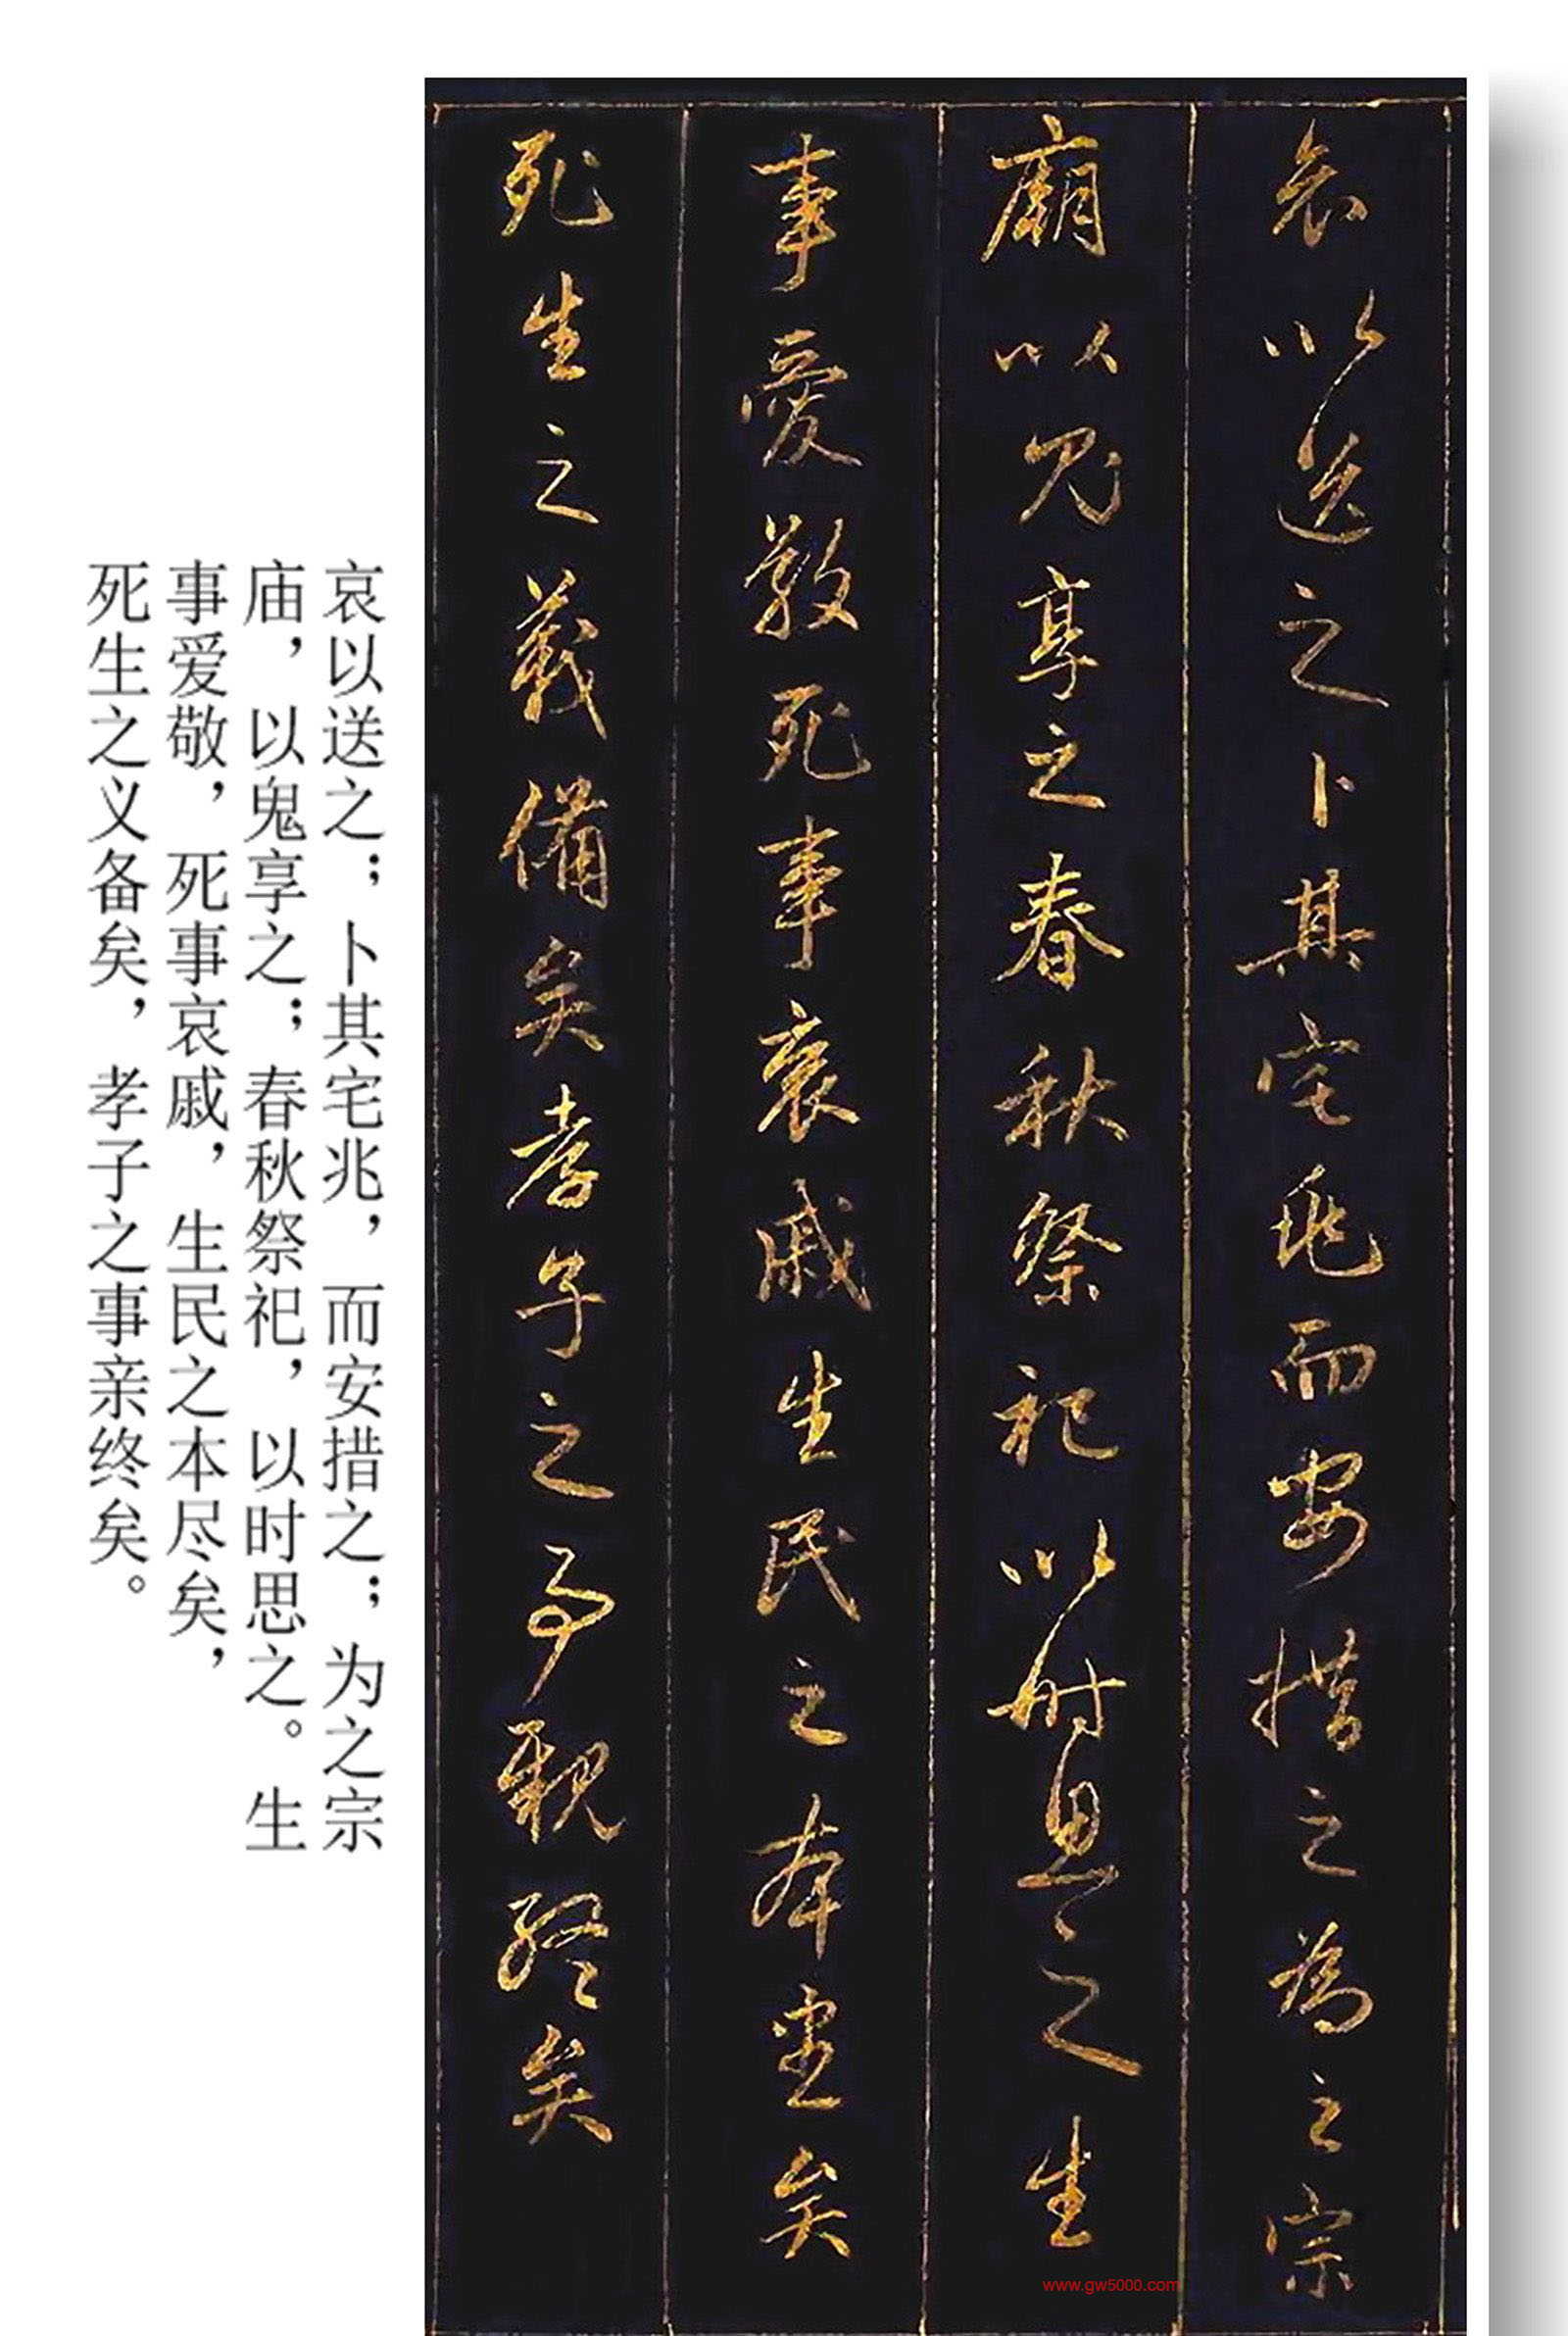 哀以送之卜其宅兆而安措之為之宗
廟以鬼享之春秋祭祀以時思之生
事愛敬死事哀戚生民之本盡矣
死生之義備矣孝子之事親終矣
哀以送之；卜其宅兆，而安措之；为之宗
庙，以鬼享之；春秋祭祀，以时思之。生
事爱敬，死事哀戚，生民之本尽矣，
死生之义备矣，孝子之事亲终矣。
www.gw5000.com